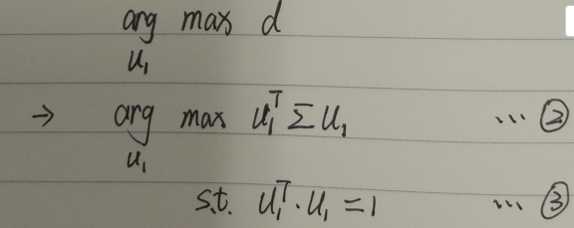 arg max d
u₁
→ arg max u₁ᵀ Σ u₁ ... ②
u₁
s.t. u₁ᵀ · u₁ = 1 ... ③